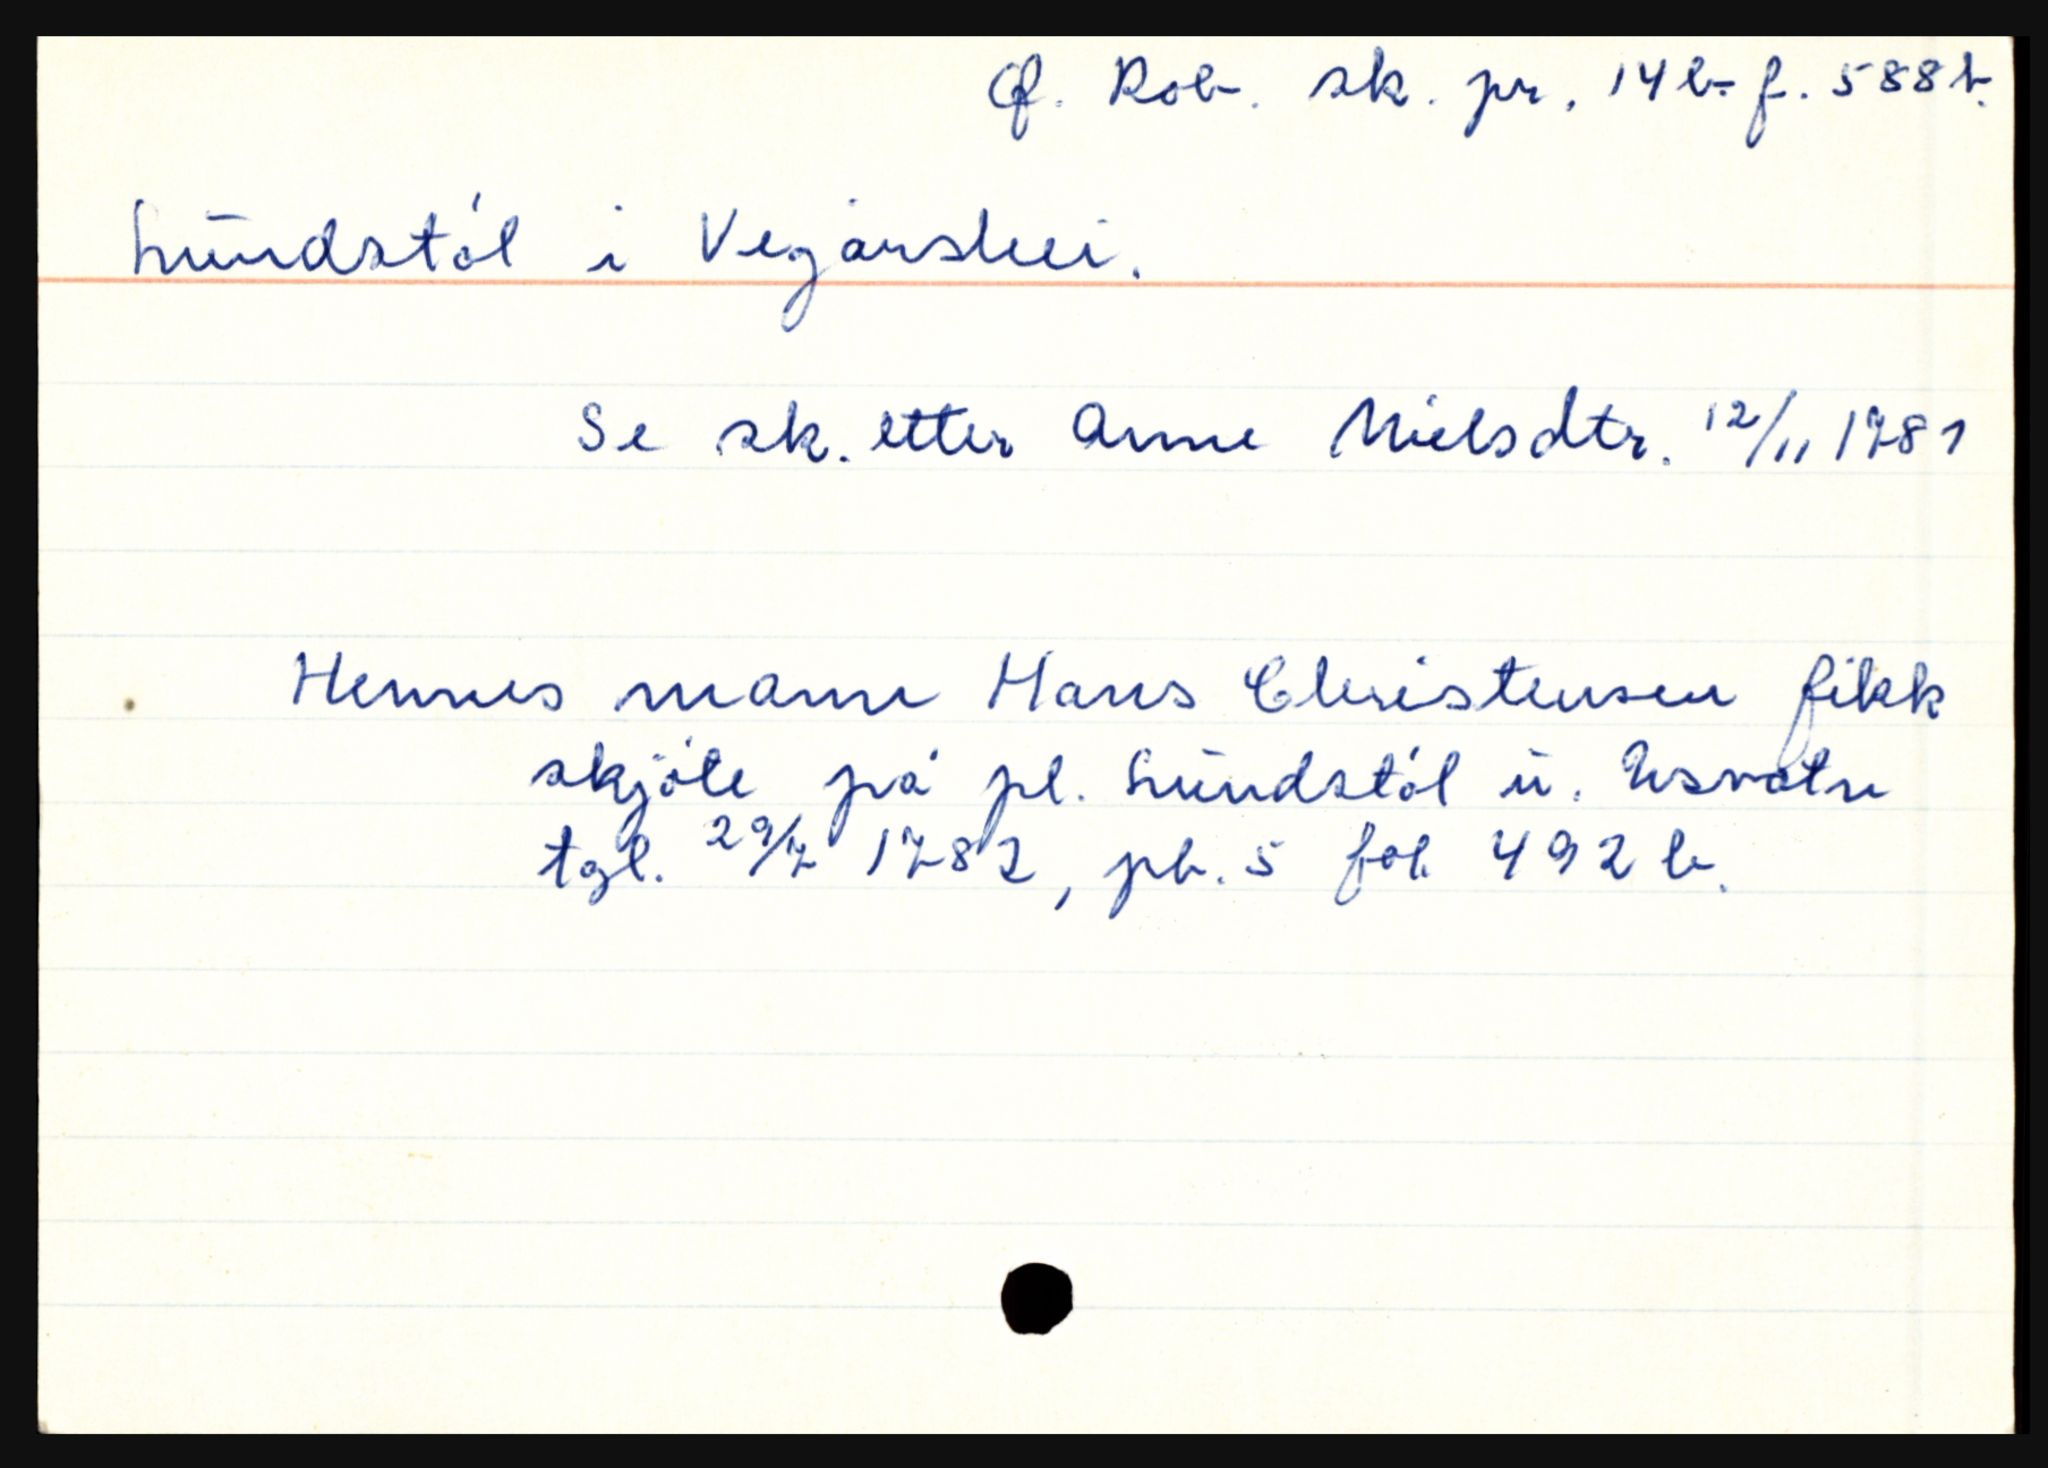 Cf. Rob. sk. pr. 14 b- f. 588 b.
Lundstøl i Vegårshei.
Se sk. etter Anne Nielsdtr. 12/11 1781
Hennes mann Hans Christensen fikk
skjöte på pl. Lundstøl u. Usvatn
tgl. 29/7 1782, pb. 5 fol. 492 b.